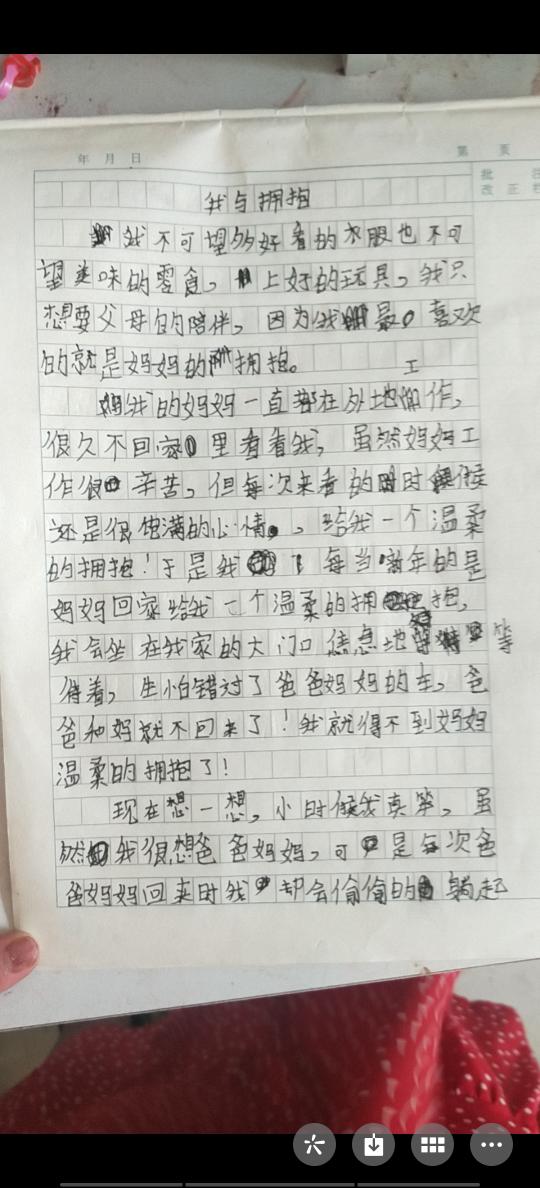 年 月 日
第 页
批 注
改 正 栏
我与拥抱
我不可望多好看的衣服也不可
望美味的零食，上好的玩具，我只
想要父母的陪伴，因为我最喜欢
的就是妈妈的拥抱。
我的妈妈一直都在外地工作，
很久不回家里看看我，虽然妈妈工
作很辛苦，但每次来看的时候
还是很饱满的心情，给我一个温柔
的拥抱！于是我每当新年的是
妈妈回家给我一个温柔的拥抱，
我会坐在我家的大门口信息地等
待着，生怕错过了爸爸妈妈的车，爸
爸和妈就不回来了！我就得不到妈妈
温柔的拥抱了！
现在想一想，小时候我真笨，虽
然我很想爸爸妈妈，可是每次爸
爸妈妈回来时我却会偷偷的躺起